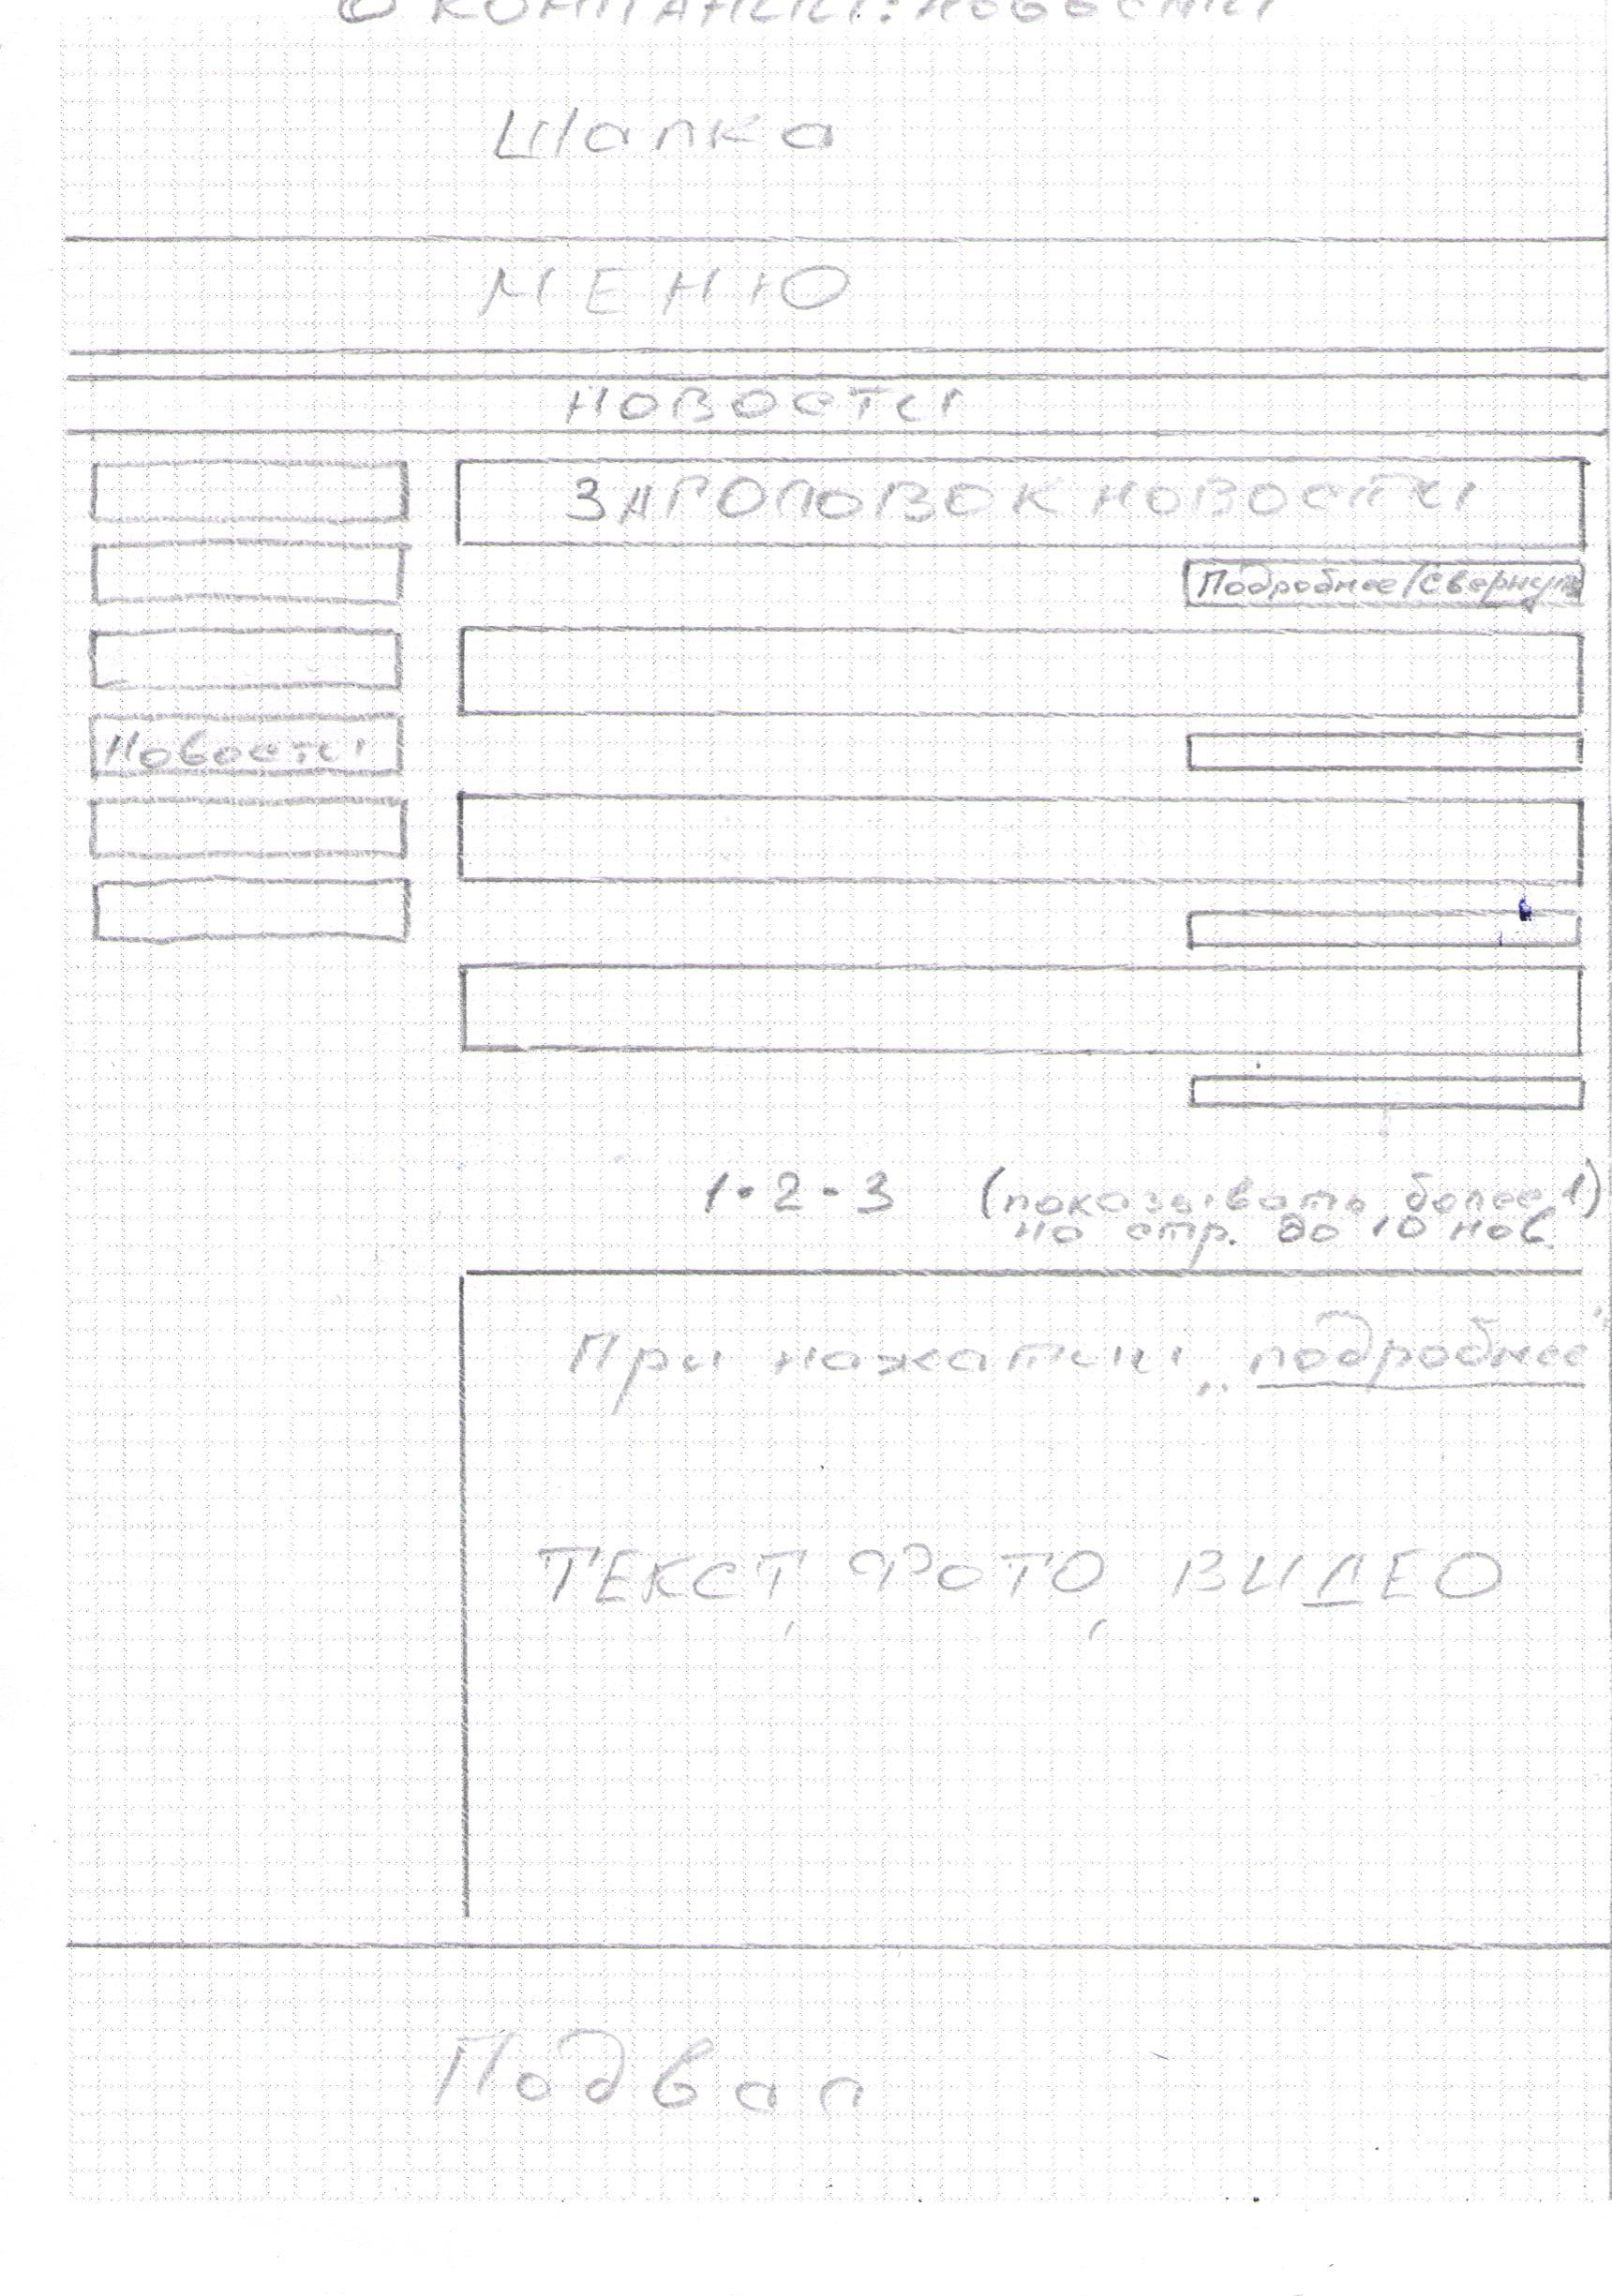 О КОМПАНИИ: новости
Шапка
МЕНЮ
НОВОСТИ
ЗАГОЛОВОК НОВОСТИ
Подробнее/свернуть
Новости
1-2-3 (показывать более 1)
на стр. до 10 нов
При нажатии „подробнее"
ТЕКСТ, ФОТО, ВИДЕО
Подвал